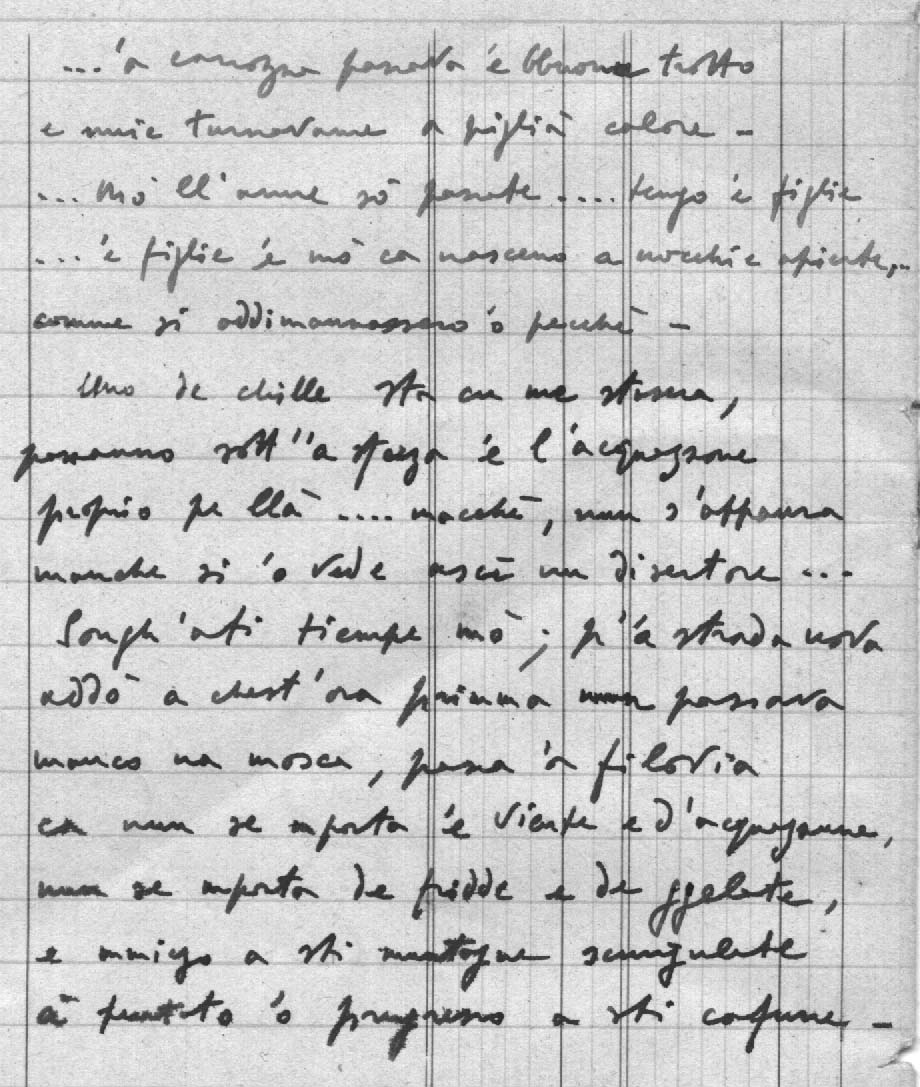 ...'a carrozza passava 'e bbuono trotto
e nuie turnavame a piglià calore -
... mò ll'anne sò passate .... tengo 'e figlie
... 'e figlie 'e mò ca nasceno a uocchie apierte,..
comme si addimannassero 'o pecchè -
Uno de chille sta cu me stasera,
passanno sott' 'a sforza 'e l'acquazzone
proprio pe llà .... macchè, nun s'appaura
manche si 'o vede ascì nu disertore ...
Songh'ati tiempe mò ; p' 'a strada nova
addò a chest'ora primma nun passava
manco na mosca, passa 'a filovia
ca nun se mporta 'e viente e d'acquazzune,
nun se mporta de fridde e de ggelate,
e mmiezo a sti muntagne scunzulate
à purtato 'o prugresso a sti cafune -